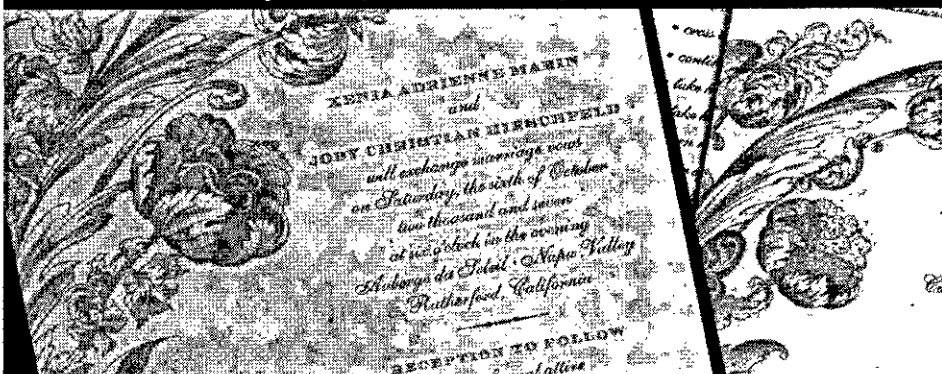 XENIA ADRIENNE MARIN
and
JOBY CHRISTIAN HIRSCHFELD
will exchange marriage vows
on Saturday, the sixth of October
two thousand and seven
at six o'clock in the evening
Auberge du Soleil · Napa Valley
Rutherford, California
RECEPTION TO FOLLOW
attire